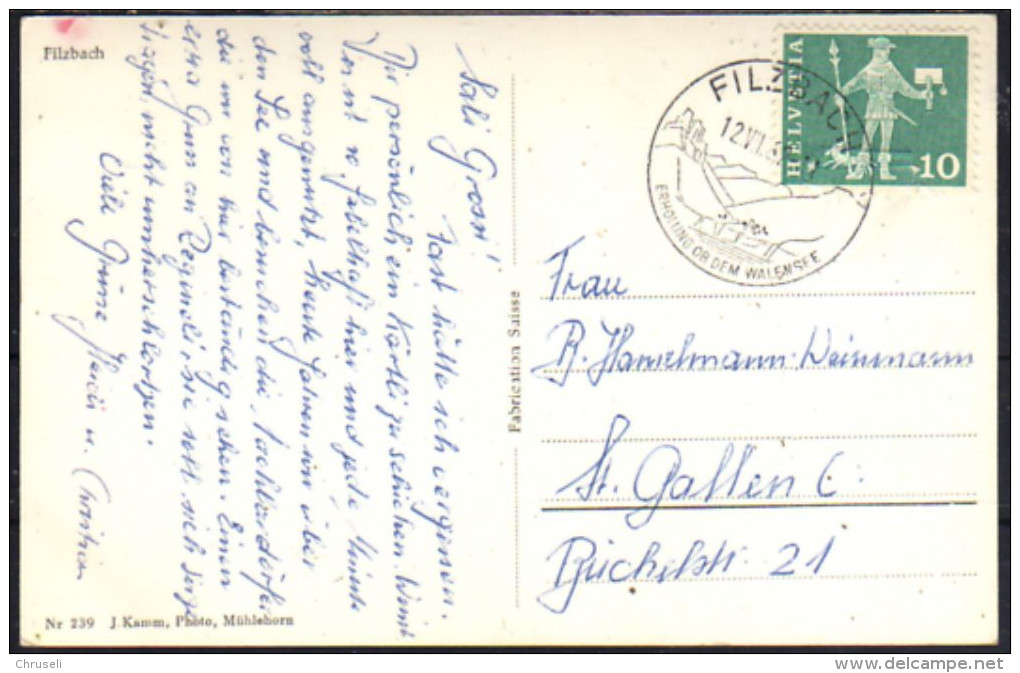 Filzbach
Sali Grosi!
Fast hätte ich vergessen,
Dir persönlich ein Kärtli zu schicken. Wir
so fabelhaft hier und jede Minute
voll ausgenützt, heute fahren wir über
den See und besuchen die
die wir von hier beständig sehen. Einen
extra Gruss an Regineli, sie soll sich
nicht umherschlortzen.
Viele Grüsse Heidi u. Christian
Nr 239 J. Kamm, Photo, Mühlehorn
Fabrication Suisse
FILZBACH
12.VI.6
ERHOLUNG OB DEM WALENSEE
HELVETIA
10
Frau
R. Hanselmann-Weinmann
St. Gallen C.
Büchelstr. 21
Chruseli
delcampe.net